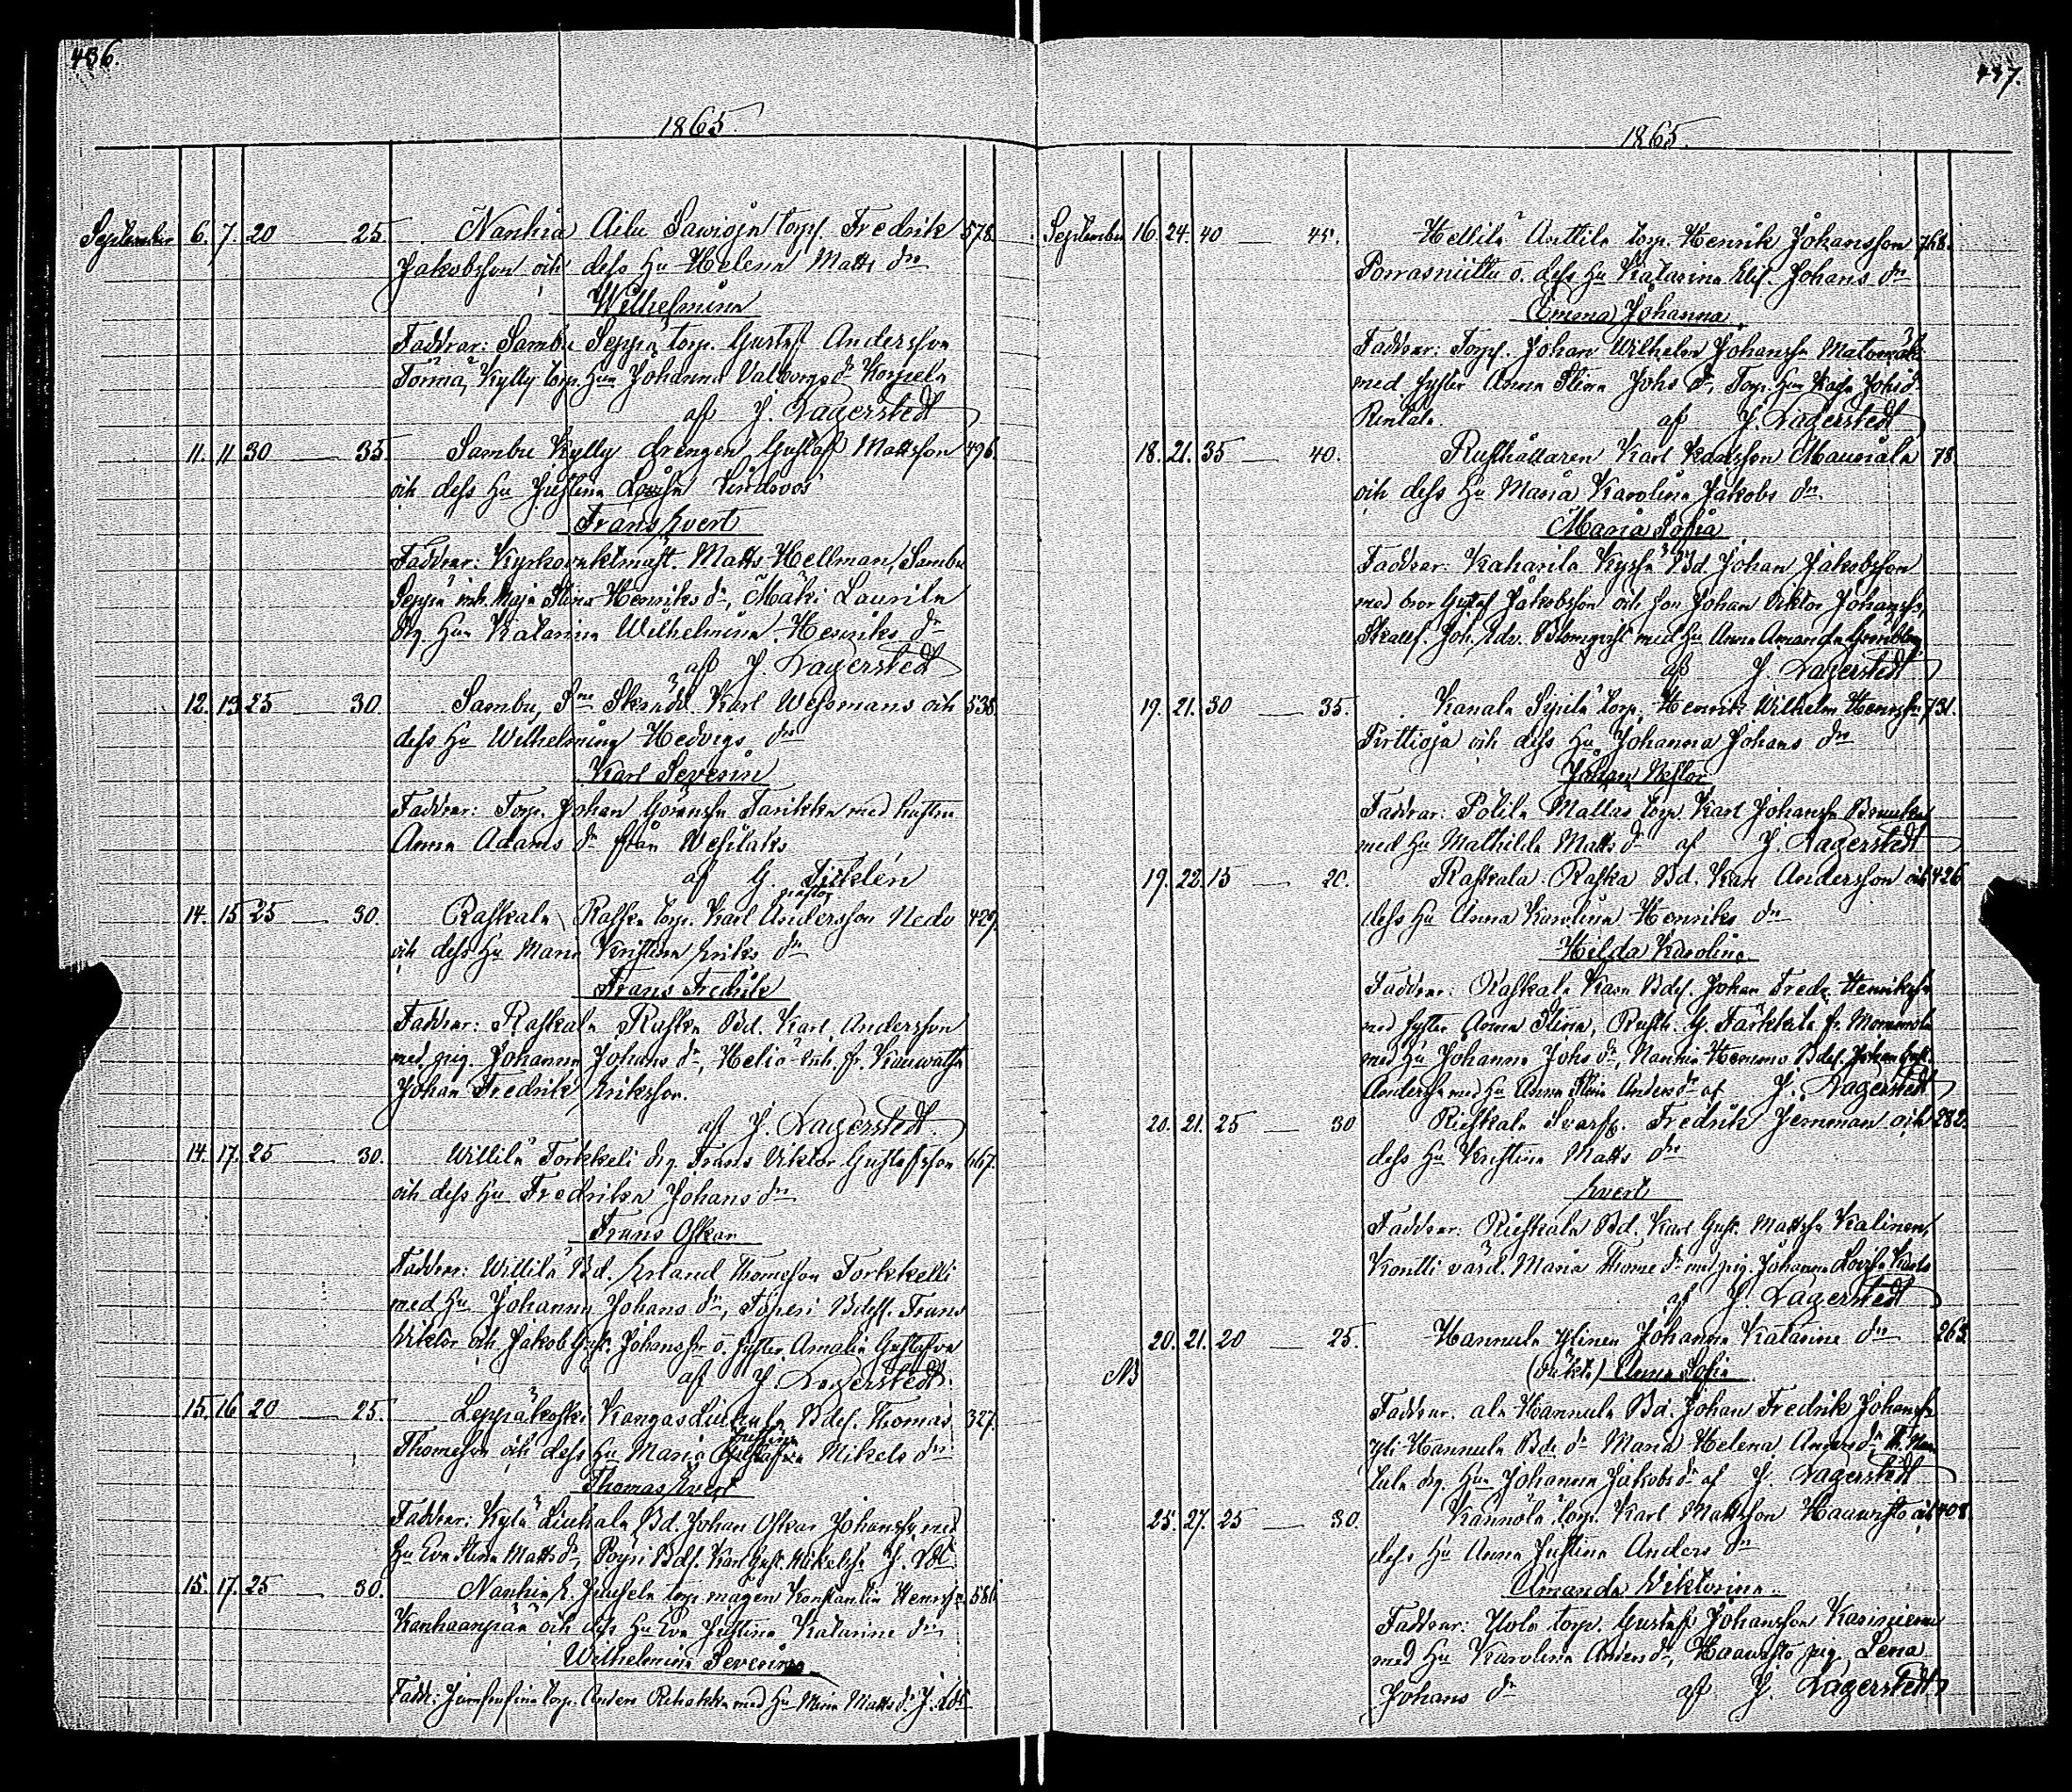 436.
1865.
September 6. 7. 20 — 25. Nanhia Ailu Sawioja torp. Fredrik 578.
Jakobsson och dess Hu Helena Matts dr
Wilhelmina
Faddrar: Sambu Seppä torp. Gustaf Andersson
Törmä, Kylly torp. Hun Johanna Valborgs dr Korpela
af J. Lagerstedt
11. 11 30 — 35. Sambu Kylly drengen Gustaf Mattsson 496.
och dess Hu Justina Lovisa Lindroos
Frans Evert
Faddrar: Kyrkovaktmäst. Matts Hellman, Sambu
Seppä inh. Maja Stina Henriks dr, Mäki Laurila
drg. Hun Katarina Wilhelmina Henriks dr
af J. Lagerstedt
12. 13 25 — 30. Sambu, Karl Wessmans och 538.
dess Hu Wilhelmina Hedvigs dr
Karl Severin
Faddrar: Torp. Johan Göransson Tarikka med hustru
Anna Adams dr från Wesilaks
af G. Ticklén
pastor
14. 15 25 — 30. Raskala Raska torp. Karl Andersson Nedo 429.
och dess Hu Maria Kristina Eriks dr
Frans Fredrik
Faddrar: Raskala Raska Bd. Karl Andersson
med pig. Johanna Johans dr, Heliö inh. fr. Kauwatsa
Johan Fredrik Eriksson.
af J. Lagerstedt.
14. 17. 25 — 30. Willilä Torkkeli drg. Frans Viktor Gustafsson 667.
och dess Hu Fredrika Johans dr
Frans Oskar
Faddrar: Willilä Bd. Erland Thomsson Torkkelli
med Hu Johanna Johans dr, Töperi Bdess. Frans
Viktor och Jakob Gust. Johanssr o. syster Amalia Gustafva
af J. Lagerstedt.
15. 16 20 — 25. Leppäkoski Kangas Liuhala Bdes. Thomas 327.
Justina
Thomsson och dess Hu Maria Gustafva Mikels dr
Thomas Evert
Faddrar: Kylä Liuhala Bd. Johan Oskar Johansson med
Hu Eva Stina Matts dr, Poyri Bds. Karl Gust. Mikelss. J. Ldt
15. 17. 25 — 30. Nanhia E. Jussela torp. mågen Konstantin Henriss. 586
Kanhaanpää och dess Hu Eva Justina Katarine dr
Wilhelmina Severina
Faddr: torp. Anders Rehakka med Hu Maria Matts dr. J. Ldt
437.
1865.
September 16. 24. 40 — 45. Hellilä Anttila torp. Henrik Johansson 768.
Porrasniittu o. dess Hu Katarina Elis. Johans dr
Emma Johanna
Faddrar: Torps. Johan Wilhelm Johanssn Matomäki
med syster Anna Stina Johs dr, Torp. Hun Kaja Johs dr
Rintala. af J. Lagerstedt
18. 21. 35 — 40. Rusthållaren Karl Karlsson Mauriala 78.
och dess Hu Maria Karolina Jakobs dr
Maria Sofia
Faddrar: Kaharila Kyssä Bd. Johan Jakobsson
med bror Gustaf Jakobsson och son Johan Viktor Johanss.
Skallf. Joh. Edv. Blomqvist med Hu Anna Amanda Grönblom
af J. Lagerstedt
19. 21. 30 — 35. Kanala Sipilä torp. Henrik Wilhelm Henrssn 731.
Pirttioja och dess Hu Johanna Johans dr
Johan Nestor
Faddrar: Polila Mallas torp. Karl Johanssn
med Hu Mathilda Matts dr af J. Lagerstedt
19. 22. 15 — 20. Raskala Raska Bd. Karl Andersson och 426.
dess Hu Anna Karolina Henriks dr
Hilda Karolina
Faddrar: Raskala Karn Bdes. Johan Fredr. Henrikss.
med syster Anna Stina, Rusth. G. Tarkkila fr. Mommola
med Hu Johanna Johs dr, Nanhia Hemmo Bdes. Johan Gust.
Anderss. med Hu Anna Stina Anders dr af J. Lagerstedt
20. 21. 25 — 30 Rieskala Svarfv. Fredrik Jernman och 282.
dess Hu Kristina Matts dr
Evert
Faddrar: Rieskala Bd. Karl Gust. Mattssn Kalinen,
Kontti värd. Maria Thome dr med pig. Johanna Lovisa Karls
af J. Lagerstedt
20. 21. 20 — 25. Hannula Ylinen Johanna Katarine dr 263.
NB (oäkta) Anna Sofia
Faddrar. ala Hannula Bd. Johan Fredrik Johanss.
yli Hannula Bds dr Maria Helena Anders dr
drg. Hun Johanna Jakobs dr af J. Lagerstedt
25. 27. 25 — 30. Kannöla torp. Karl Mattsson Haawisto och 408.
dess Hu Anna Justina Anders dr
Amanda Viktorina.
Faddrar: Ylola torp. Gustaf Johansson Kariniemi
med Hu Karolina Anders dr, Haawisto pig. Lena
Johans dr af J. Lagerstedt